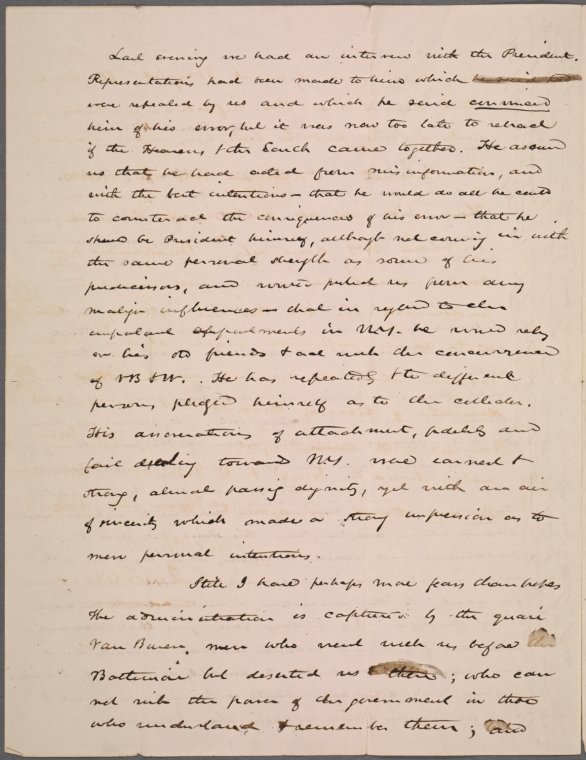 Last evening we had an interview with the President.
Representations had been made to him which
were repeated by us and which he said convinced
him of his error, but it was now too late to retract
if the Heavens & the Earth came together. He assured
us that he had acted from misinformation, and
with the best intentions — that he would do all he could
to counteract the consequences of his error — that he
should be President himself, although not coming in with
the same personal strength as some of his
predecessors, and would protect us from any
malign influences — that in regard to the
important appointments in N.Y. he would rely
on his old friends & act with the concurrence
of VB & W. He has repeatedly & to different
persons pledged himself as to the collector.
His asseverations of attachment, fidelity and
fair dealing toward N.Y. were earnest &
strong, almost passing dignity, yet with an air
of sincerity which made a strong impression as to
mere personal intentions.
Still I have perhaps more fears than hopes
The administration is captured by the quasi
Van Buren men who went with us before the
Baltimore but deserted us there; who can
not risk the power of the government in those
who understand & remember them; and